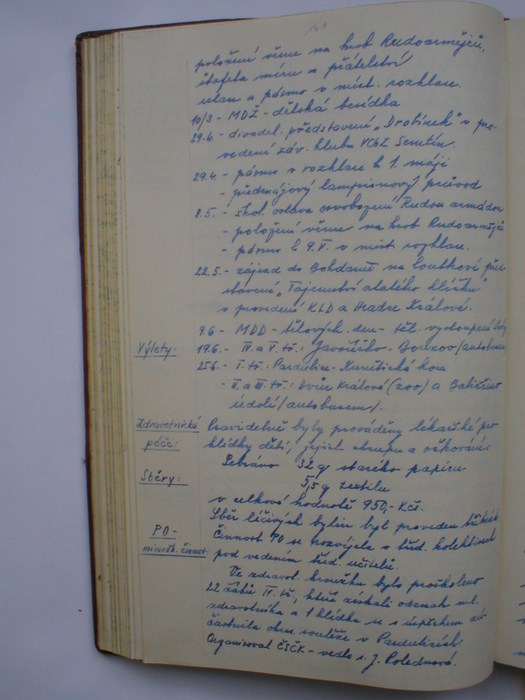 položení věnce na hrob Rudoarmějců,
štafeta míru a přátelství
a pásmo v míst. rozhlase.
10/3 - MDŽ - dětská besídka
29.4. - divadel. představení "Drobínek" v pro-
vedení záv. klubu VCHZ Semtín.
29.4. - pásmo v rozhlase k 1. máji
- předmájový lampionový průvod
8.5. - škol. oslava osvobození Rudou armádou
- položení věnce na hrob Rudoarmějců
- pásmo k 9.V. v míst. rozhlase.
22.5. - zájezd do Bohdanče na loutkové před-
stavení "Tajemství zlatého klíčku"
v provedení KLD z Hradce Králové.
9.6. - MDD - tělových. den - těl. vystoupení
Výlety: 19.6. - IV. a V. tř.: Javoříčko - Bouzov /autobusem
25.6. - I. tř.: Pardubice - Kunětická hora
- II. a III. tř.: Dvůr Králové (zoo) a Babiččino
údolí /autobusem/.
Zdravotnická péče: Pravidelně byly prováděny lékařské pro-
hlídky dětí, jejich chrupu a očkování.
Sběry: Sebráno 32 q starého papíru
5,5 q textilu
v celkové hodnotě 950,- Kčs.
Sběr léčivých bylin byl proveden
PO - mimotř. činnost: Činnost PO se rozvíjela v tříd. kolektivech
pod vedením tříd. učitelů.
Ve zdravot. kroužku bylo proškoleno
22 žáků IV. tř., kteří získali odznak ml.
zdravotníka a 1 hlídka se s úspěchem zú-
častnila okr. soutěže v Pardubicích.
Organisoval ČSČK - vedla s. J. Polednová.